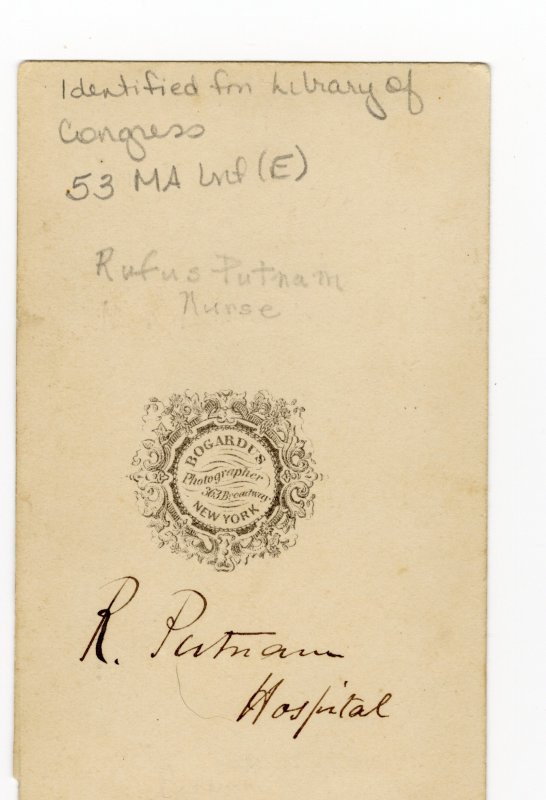 Identified fm Library of
Congress
53 MA Inf (E)
Rufus Putnam
Nurse
BOGARDUS
Photographer
363 Broadway
NEW YORK
R. Putnam
Hospital